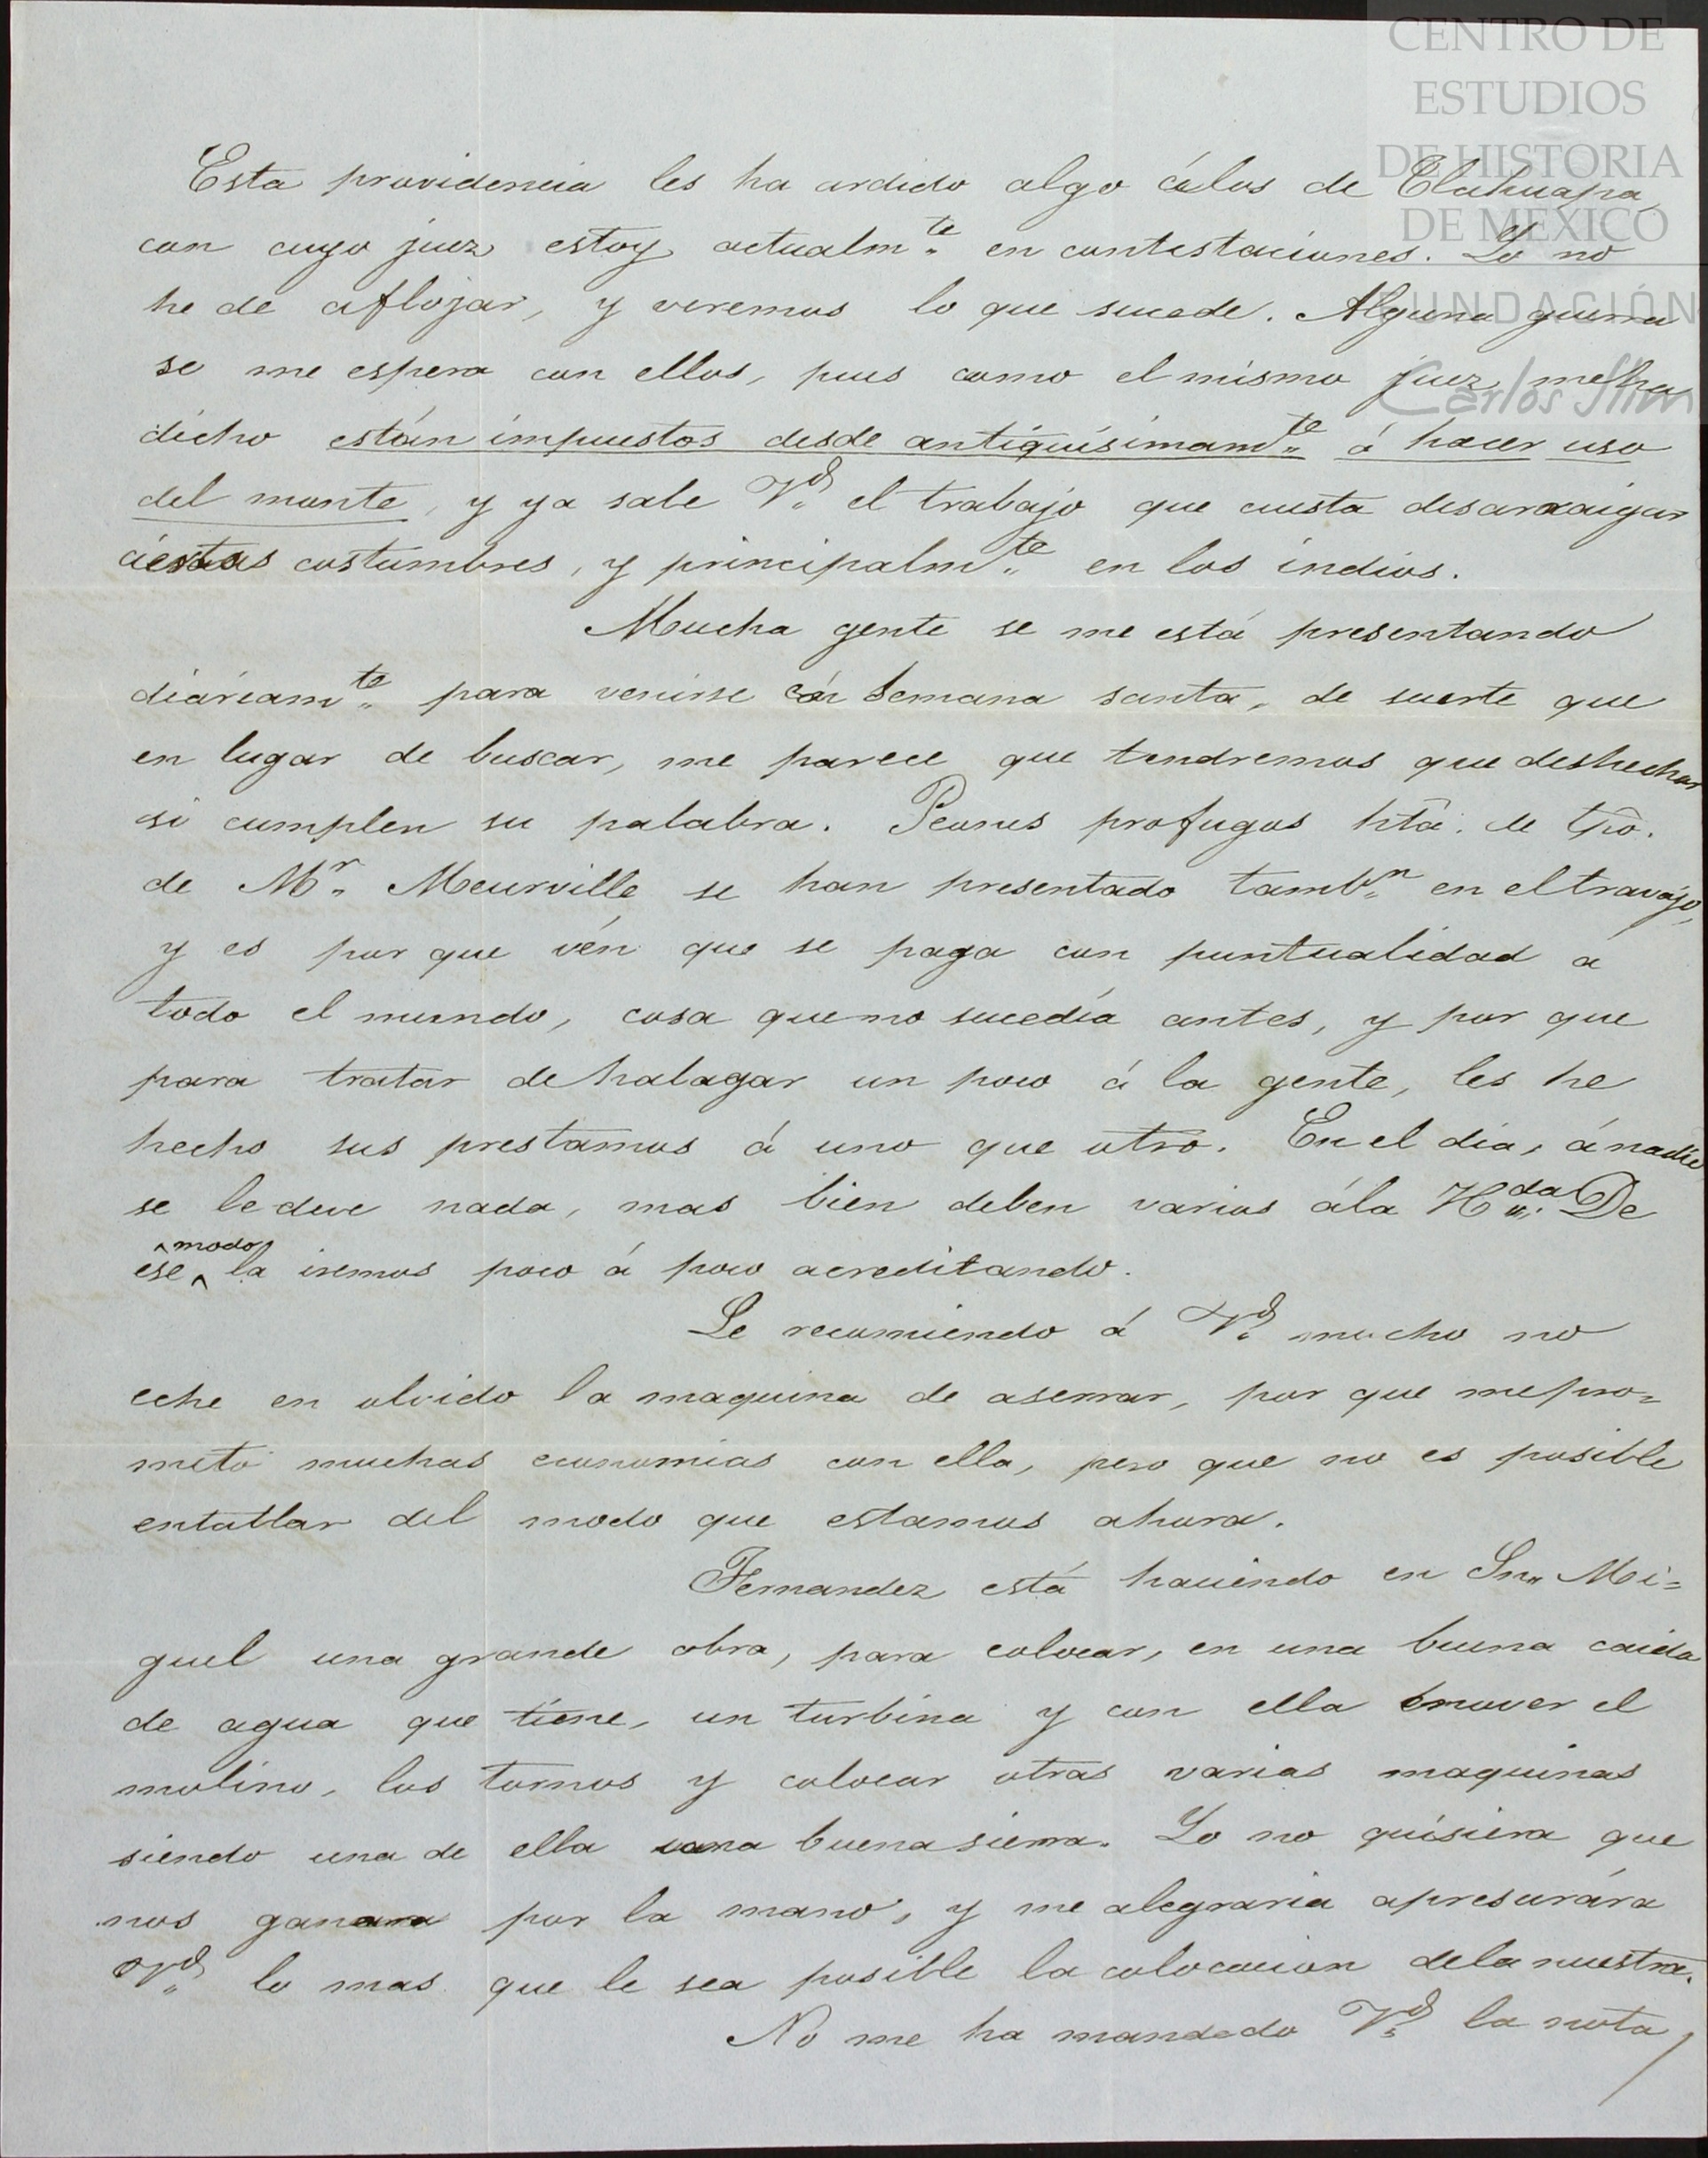 CENTRO DE
ESTUDIOS
DE HISTORIA
DE MEXICO
FUNDACIÓN
Carlos Slim
Esta providencia les ha ardido algo álos de Clahuapa
con cuyo juez estoy actualmte. en contestaciones. Yo no
he de aflojar, y veremos lo que sucede. Alguna guerra
se me espera con ellos, pues como el mismo juez me ha
dicho están impuestos desde antiquisimamte. á hacer uso
del monte, y ya sabe Vd. el trabajo que cuesta desarraigar
ciertas costumbres, y principalmte. en los indios.
Mucha gente se me está presentando
diariamte. para venirse en Semana santa, de suerte que
en lugar de buscar, me parece que tendremos que deshechar
si cumplen su palabra. Peones profugos hta. de tpo.
de Mr. Meurville se han presentado tambn. en el travajo,
y es por que vén que se paga con puntualidad a
todo el mundo, cosa que no sucedía antes, y por que
para tratar de halagar un poco á la gente, les he
hecho sus prestamos á uno que otro. En el dia, á nadie
se le deve nada, mas bien deben varios ála Hda. De
ese modo la iremos poco á poco acreditando.
Le recomiendo á Vd. mucho no
eche en olvido la maquina de aserrar, por que me pro=
meto muchas economias con ella, pero que no es posible
entablar del modo que estamos ahora.
Fernandez está haciendo en Sn. Mi=
guel una grande obra, para colocar, en una buena caida
de agua que tiene, un turbina y con ella mover el
molino, los tornos y colocar otras varias maquinas
siendo una de ella una buena sierra. Yo no quisiera que
nos ganara por la mano, y me alegraria apresurára
Vd. lo mas que le sea posible la colocacion dela nuestra.
No me ha mandado Vd. la nota